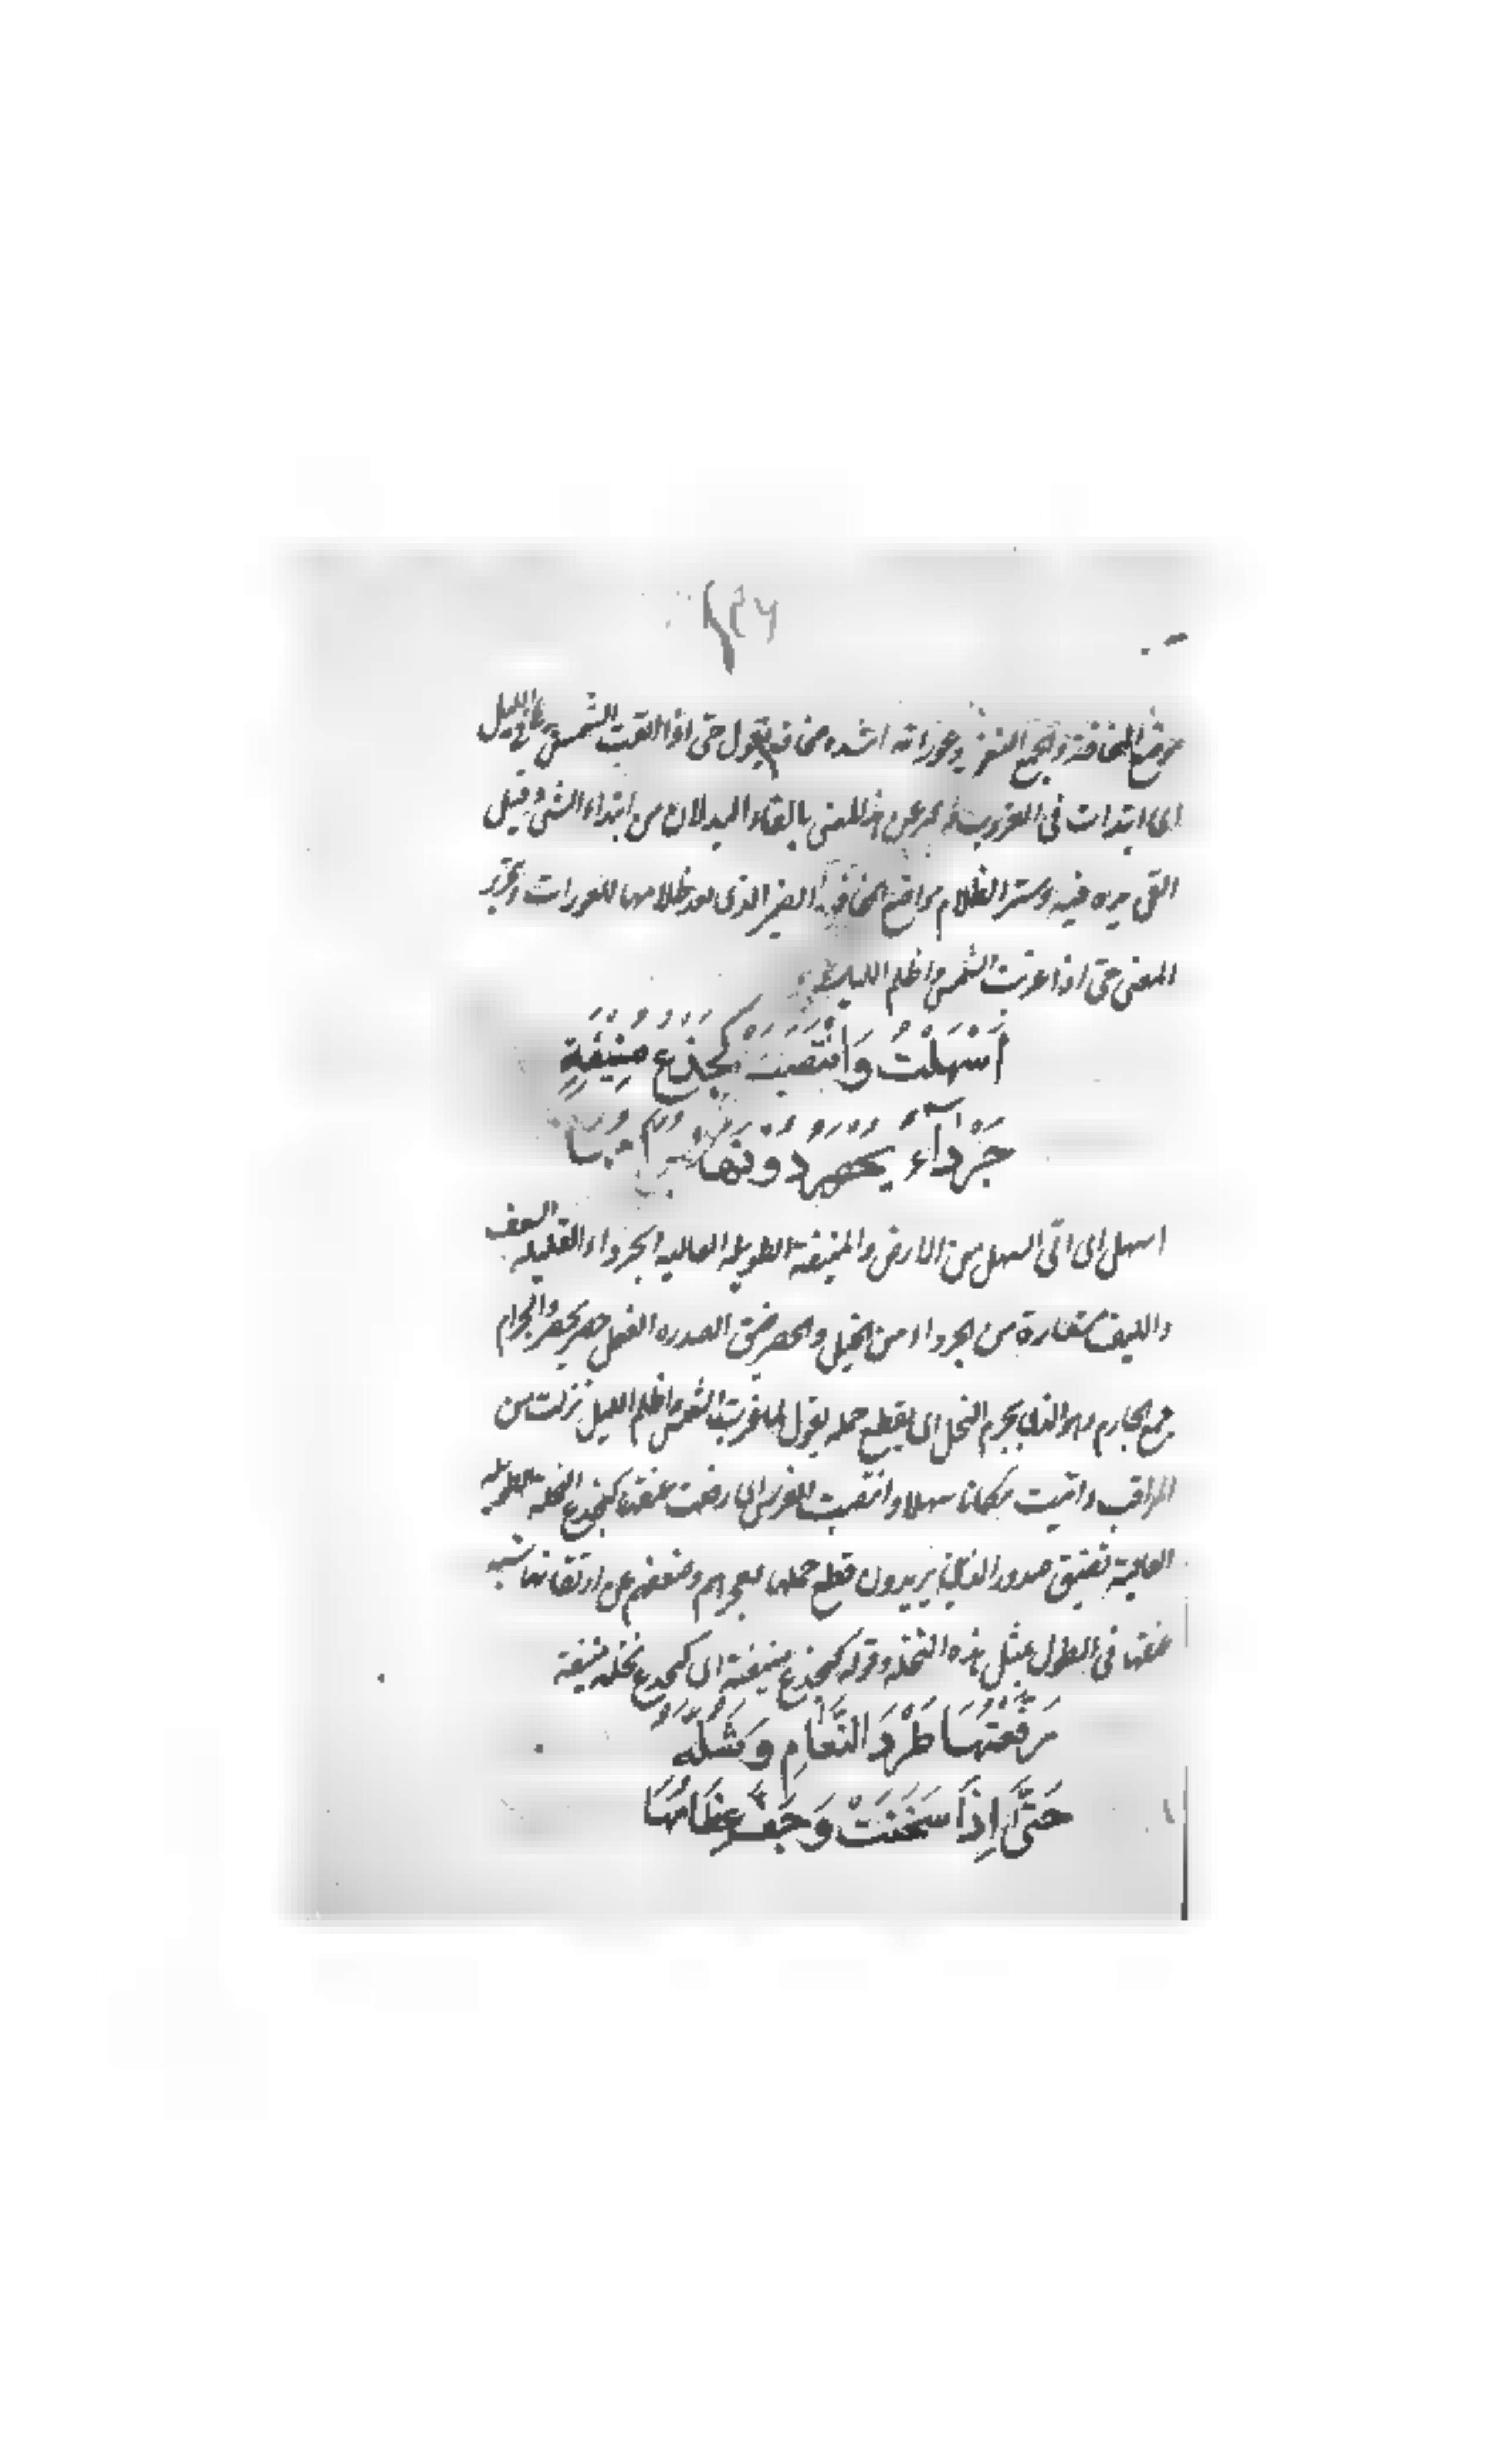 ١٢٦
موضع المخافة والجمع الثغور وعوراته اشده مخافة يقول حتى اذا القت الشمس يدها فى الليل
اى ابتدات فى الغروب وعبر عن هذا المعنى بالقاء اليد لان من ابتداء الشئ قيل
القى يده فيه وستر الظلام مواضع المخافة الضمير الذى بعد ظلامها للعورات وتحرير
المعنى حتى اذا غربت الشمس واظلم الليل
اَسْهَلْتُ وَانْتَصَبَتْ كَجِذْعِ مُنِيْفَةٍ
جَرْدَآءَ يَحْصَرُ دُوْنَهَا جُرَّامُهَا
اسهل اى اتى السهل من الارض والمنيفة الطويله العاليه الجرداء القليله السعف
والليف مستعارة من الجرداء من الخيل والحصر ضيق الصدر والفعل حصر يحصر والجرام
جمع الجارم وهو الذى يجرم النخل اى يقطع حمله يقول لما غربت الشمس واظلم الليل نزلت من
المراقب واتيت مكانا سهلا وانتصبت الفرس اى رفعت عنقها كجذع النخلة الطويله
العالية تضيق صدور الذين يريدون قطع حملها لعجزهم وضعفهم عن ارتقائها شبه
عنقها فى الطول بمثل هذه النخله وقوله كجذع منيفة اى كجذع نخلة منيفة
رَفَّعْتُهَا طَرَدَ النَّعَامِ وَشَلَّهُ
حَتَّى اِذَا سَخِنَتْ وَخَفَّ عِظَامُهَا